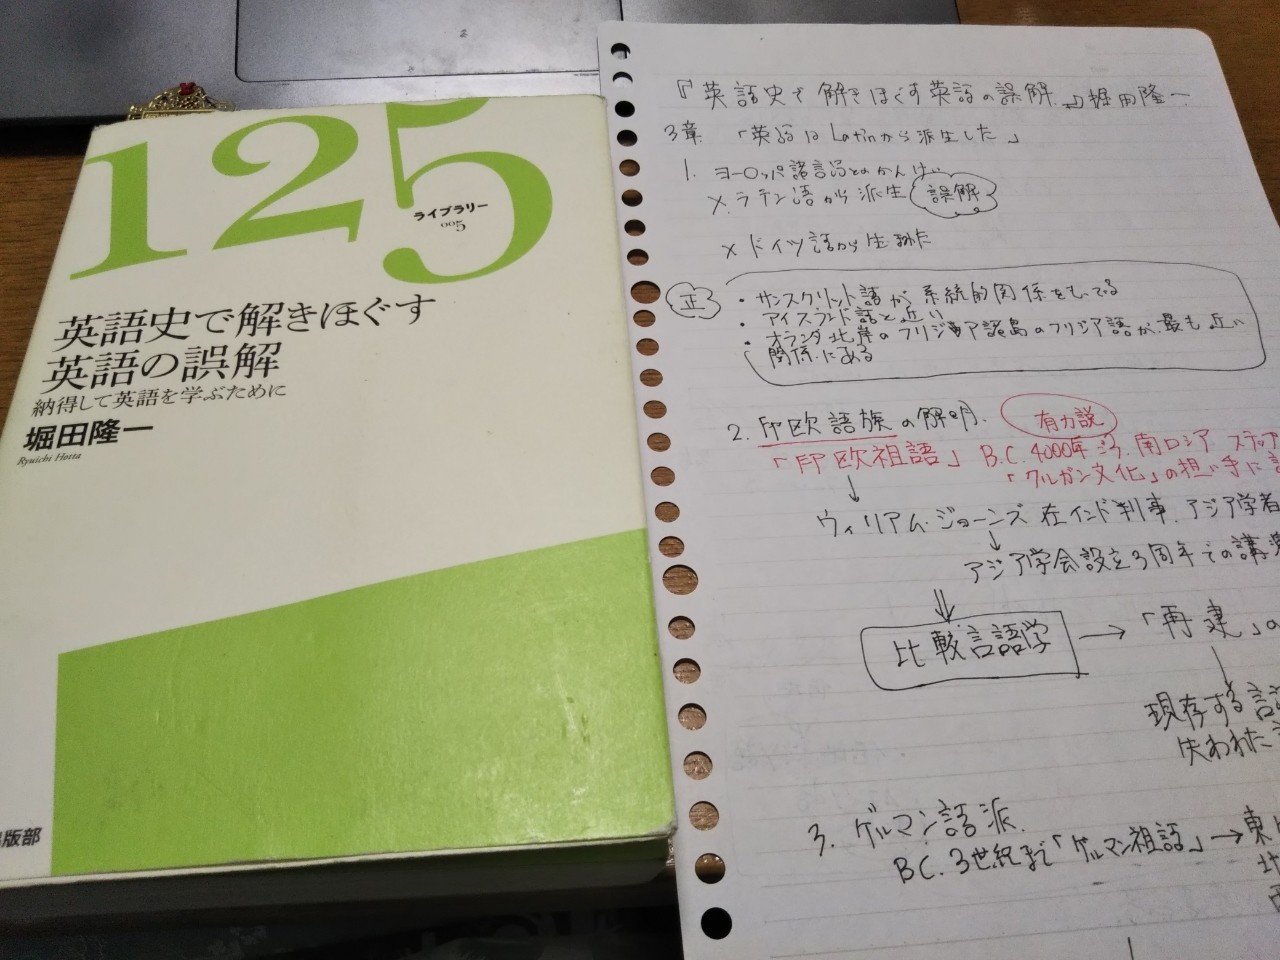 125
ライブラリー
005
英語史で解きほぐす
英語の誤解
納得して英語を学ぶために
堀田隆一
Ryuichi Hotta
版部
『英語史で解きほぐす英語の誤解』堀田隆一
3章. 「英語は Latinから派生した」
1. ヨーロッパ諸言語とのかんけい
× ラテン語から派生 誤解
× ドイツ語から生まれた
正
・サンスクリット語が系統的関係をもってる
・アイスランド語と近い
・オランダ北岸のフリジア諸島のフリジア語が、最も近い
関係にある
2. 印欧語族の解明. 有力説
「印欧祖語」 B.C.4000年ごろ. 南ロシア ステップ
「クルガン文化」の担い手に
↓
ウィリアム・ジョーンズ 在インド判事. アジア学者
↓
アジア学会設立3周年での講
⇓
比較言語学 → 「再建」の
現存する言
失われた
3. ゲルマン語派.
B.C.3世紀まで「ゲルマン祖語」→東
北
西